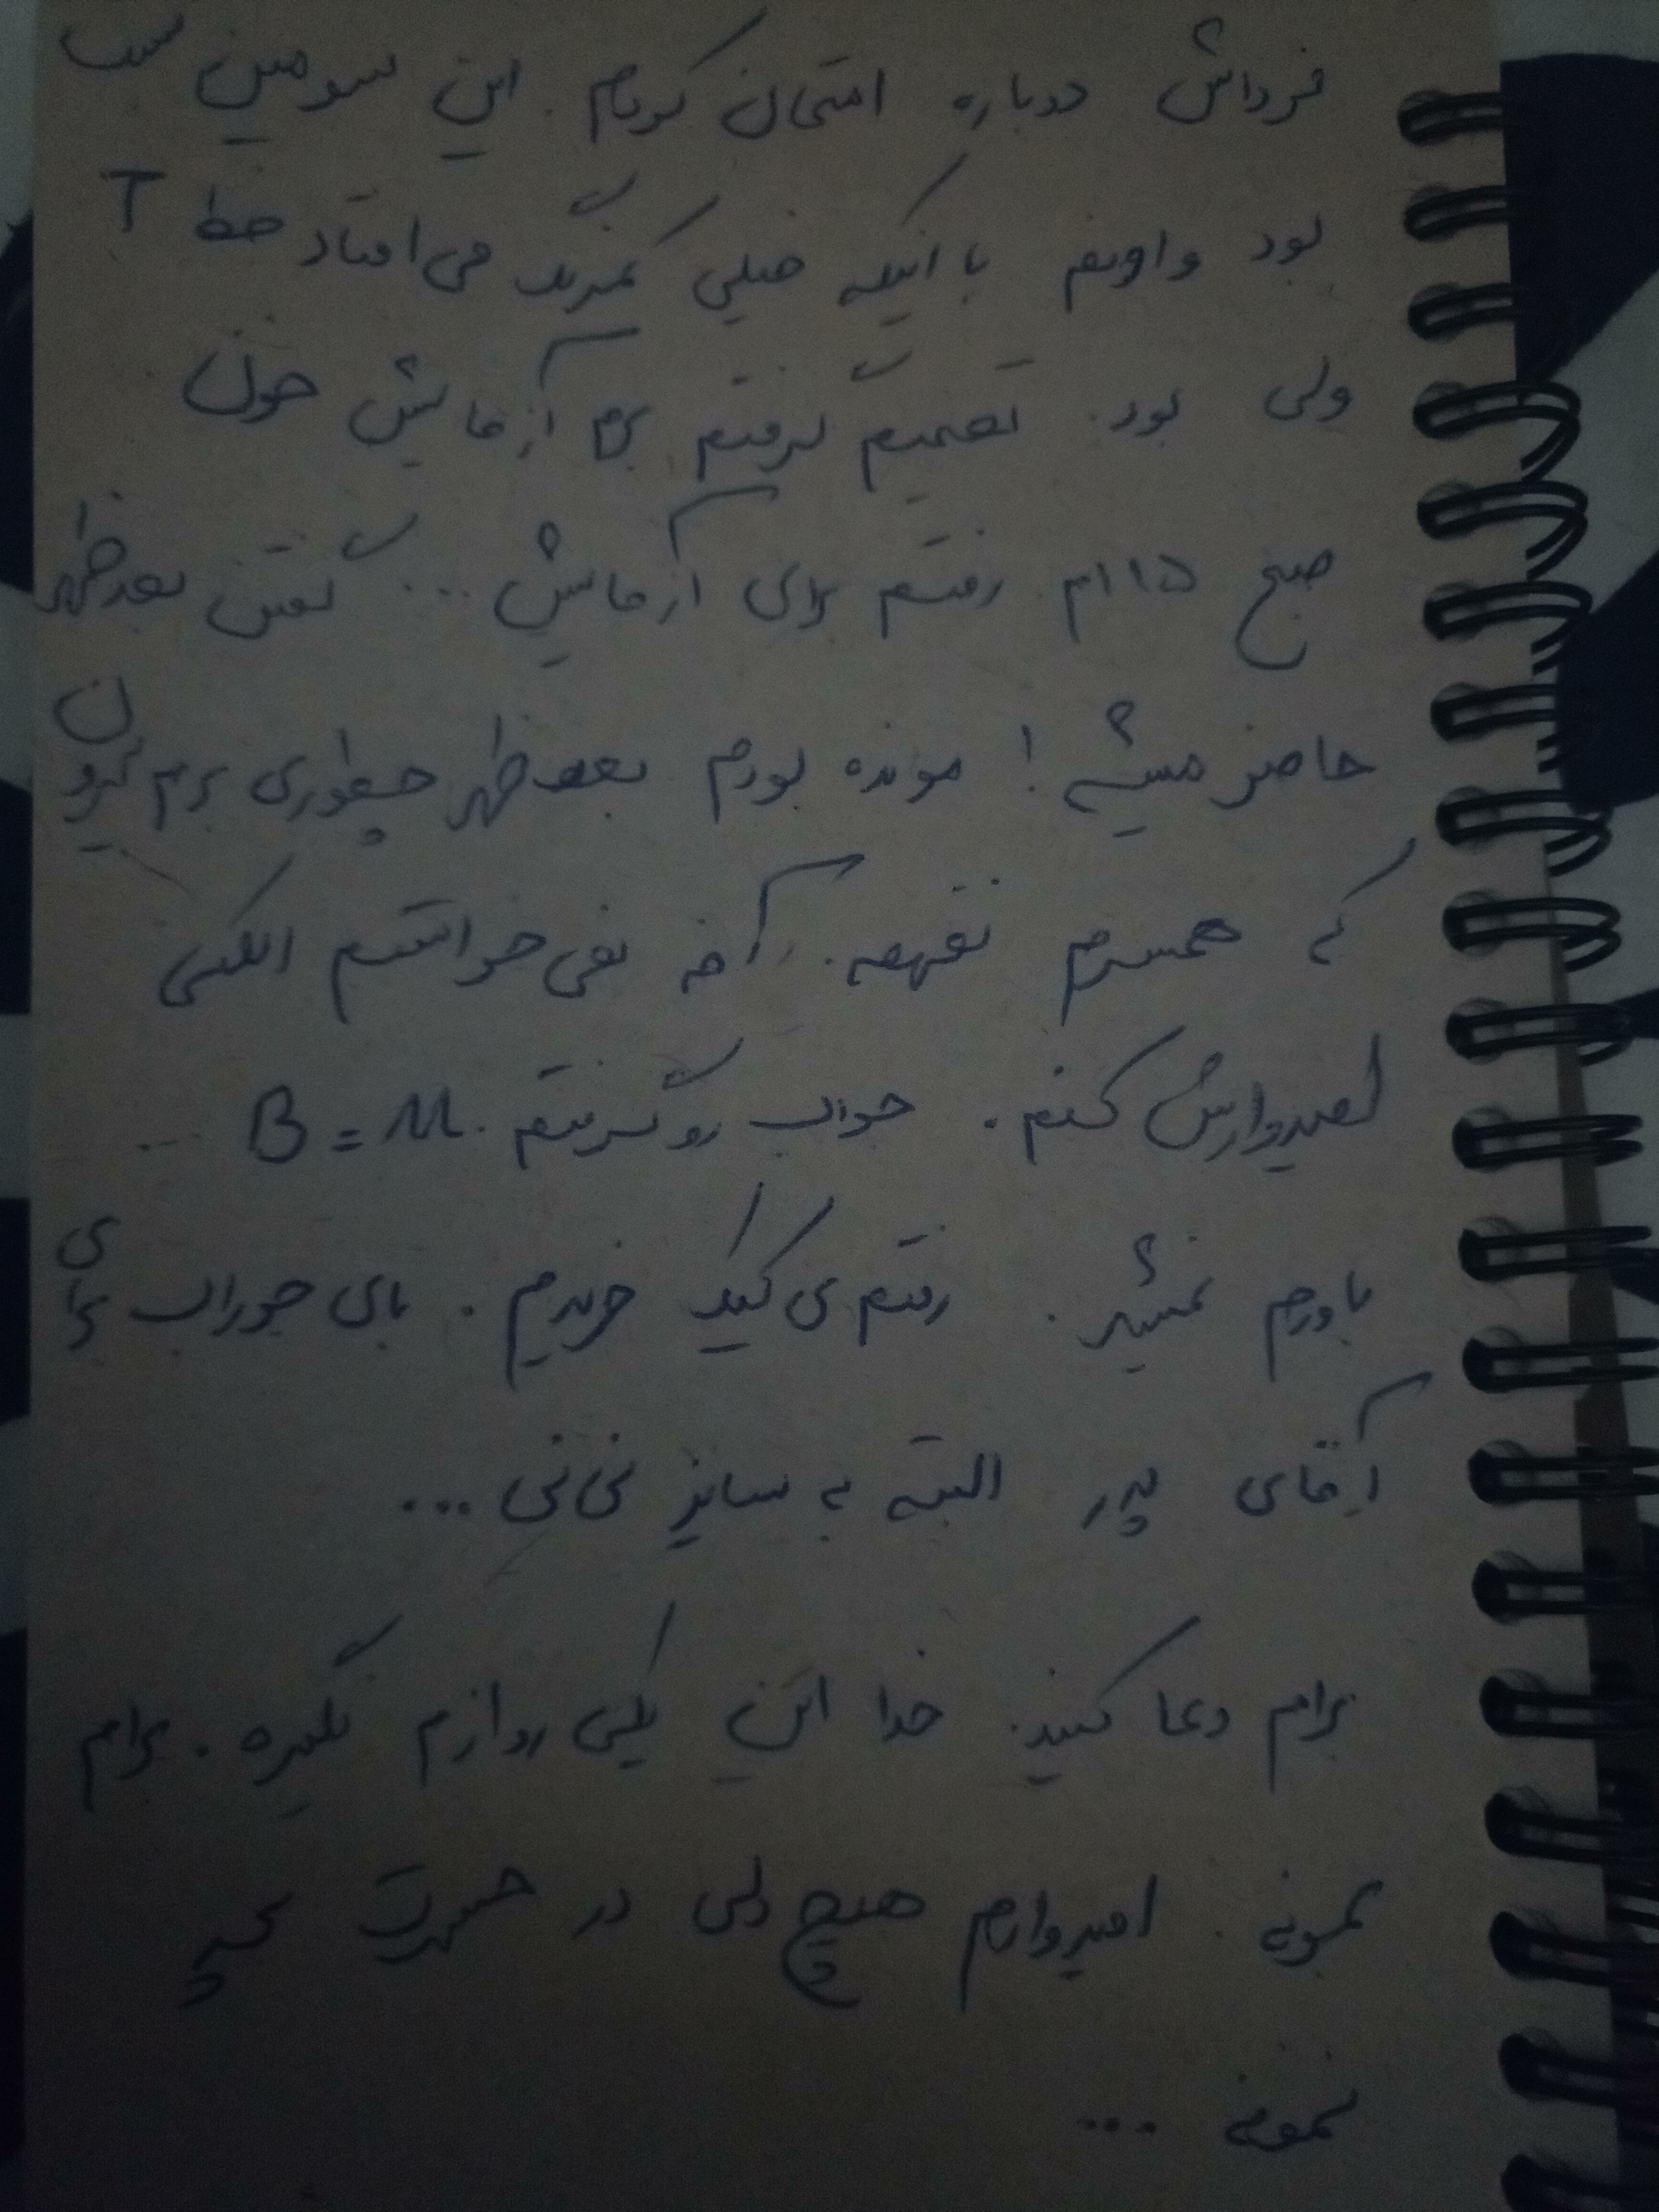 فرداش دوباره امتحان کردم. این سومین تست
بود و اونم با اینکه خیلی کمرنگ می افتاد خط T
ولی بود. تصمیم گرفتم برم آزمایش خون
صبح ۱۵ ام رفتم برای آزمایش... گفتن بعدظهر
حاضر میشه! مونده بودم بعدظهر چطوری برم بیرون
که همسرم نفهمه. آخه نمی خواستم الکی
امیدوارش کنم. جواب رو گرفتم. B = ...
باورم نمیشد. رفتم ی کیک خریدم. بای جوراب برای
آقای پدر البته به سایز نی نی...
برام دعا کنید. خدا این یکی رو ازم نگیره. برام
بمونه. امیدوارم هیچ دلی در حسرت بچه
نمونه ...